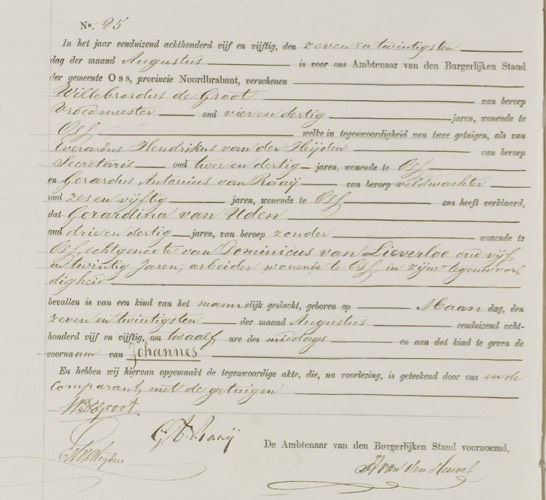 No. 85
In het jaar eenduizend achthonderd vijf en vijftig, den zeven en twintigsten
dag der maand Augustus is voor ons Ambtenaar van den Burgerlijken Stand
der gemeente Oss, provincie Noordbrabant, verschenen
Willebrordus de Groot van beroep
Vroedmeester oud vier en dertig jaren, wonende te
Oss welke in tegenwoordigheid van twee getuigen, als van
Everardus Hendrikus van der Heijden van beroep
Secretaris oud twee en dertig jaren, wonende te Oss
en Gerardus Antonius van Raaij van beroep veldwachter
oud zes en vijftig jaren, wonende te Oss ons heeft verklaard,
dat Gerardina van Uden
oud drie en dertig jaren, van beroep zonder wonende te
Oss echtgenote van Dominicus van Lieverloo oud vijf
en twintig Jaren, arbeider wonende te Oss, in zijne tegenwoor
digheid
bevallen is van een kind van het mannelijk geslacht, geboren op Maandag, den
zeven en twintigsten der maand Augustus eenduizend acht-
honderd vijf en vijftig, om twaalf ure des middags en aan dat kind te geven de
voornaam van Johannes
En hebben wij hiervan opgemaakt de tegenwoordige akte, die, na voorlezing, is geteekend door ons en de
Comparant, met de getuigen
De Ambtenaar van den Burgerlijken Stand voornoemd,